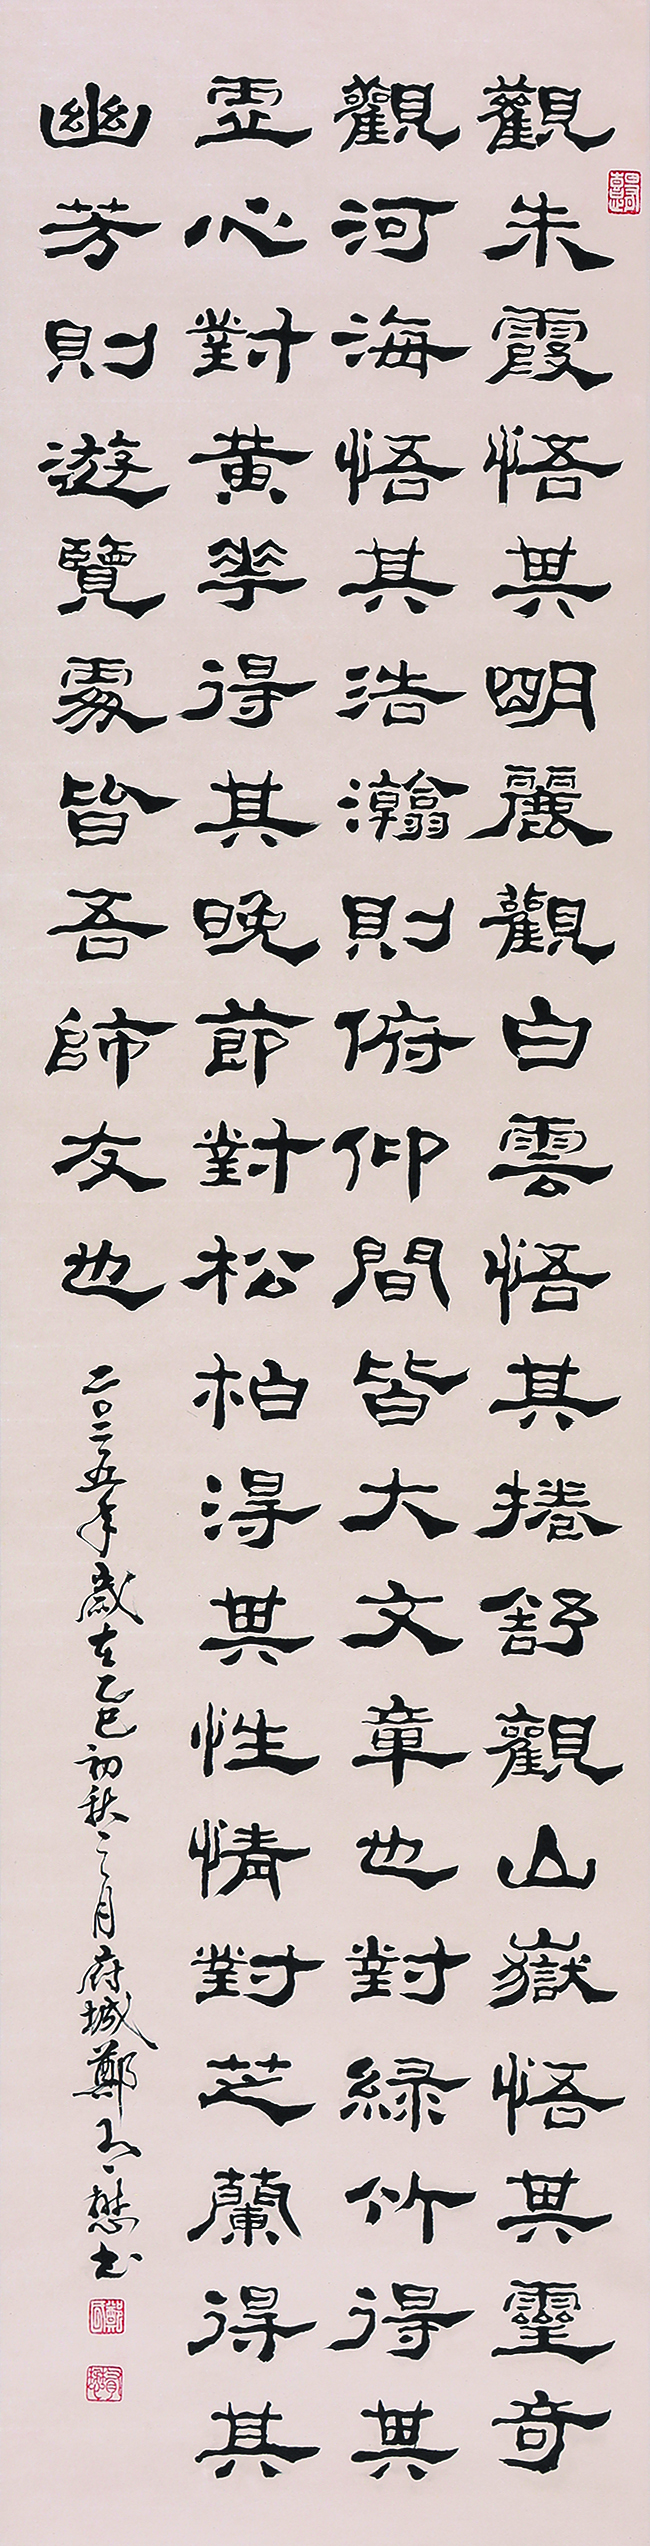 觀朱霞悟其明麗觀白雲悟其捲舒觀山嶽悟其靈奇
觀河海悟其浩瀚則俯仰間皆大文章也對綠竹得其
虛心對黃華得其晚節對松柏得其性情對芝蘭得其
幽芳則遊覽處皆吾師友也
二〇二五年歲在乙巳初秋之月府城鄭懋书